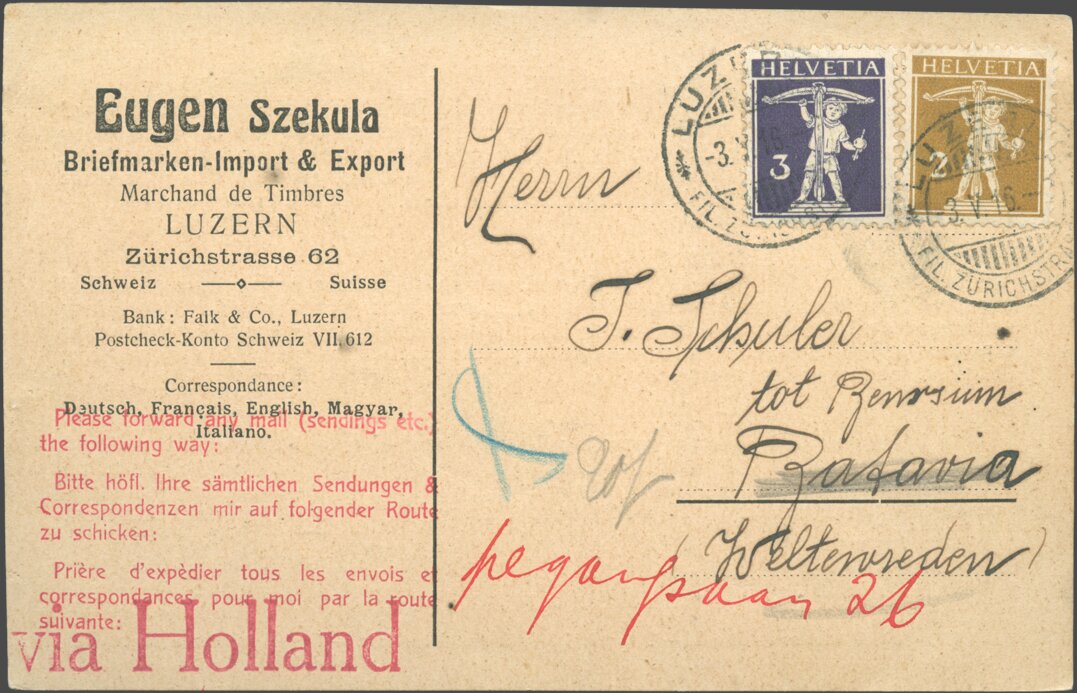 Eugen Szekula
Briefmarken-Import & Export
Marchand de Timbres
LUZERN
Zürichstrasse 62
Schweiz Suisse
Bank: Falk & Co., Luzern
Postcheck-Konto Schweiz VII. 612
Correspondance:
Deutsch, Français, English, Magyar,
Italiano.
Please forward any mail (sendings etc.)
the following way:
Bitte höfl. Ihre sämtlichen Sendungen &
Correspondenzen mir auf folgender Route
zu schicken:
Prière d'expèdier tous les envois et
correspondances pour moi par la route
suivante:
via Holland
HELVETIA
3
HELVETIA
2
LUZERN
-3.V.16-
FIL. ZÜRICHSTR
LUZERN
-3.V.16-
FIL. ZÜRICHSTRA
Herrn
J. Schuler
tot
Batavia
(Weltevreden)
pegangsaan 26